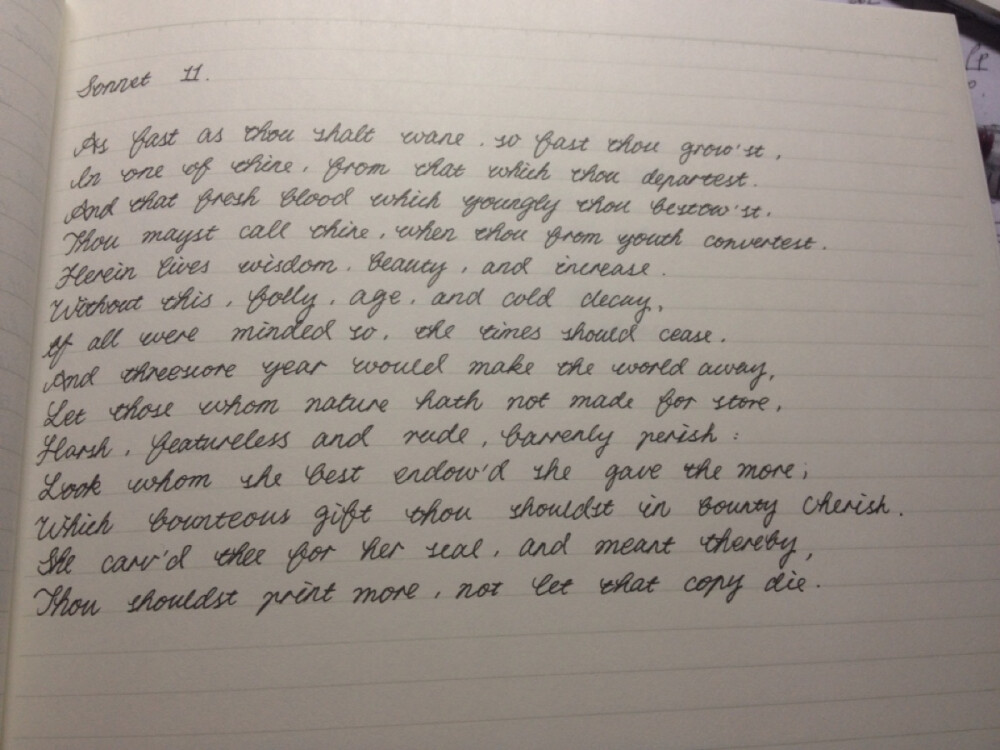 Sonnet 11.
As fast as thou shalt wane, so fast thou grow'st,
In one of thine, from that which thou departest.
And that fresh blood which youngly thou bestow'st.
Thou mayst call thine, when thou from youth convertest.
Herein lives wisdom, beauty, and increase.
Without this, folly, age, and cold decay,
If all were minded so, the times should cease.
And threescore year would make the world away,
Let those whom nature hath not made for store,
Harsh, featureless and rude, barrenly perish:
Look whom she best endow'd she gave the more;
Which bounteous gift thou shouldst in bounty cherish.
She carv'd thee for her seal, and meant thereby,
Thou shouldst print more, not let that copy die.